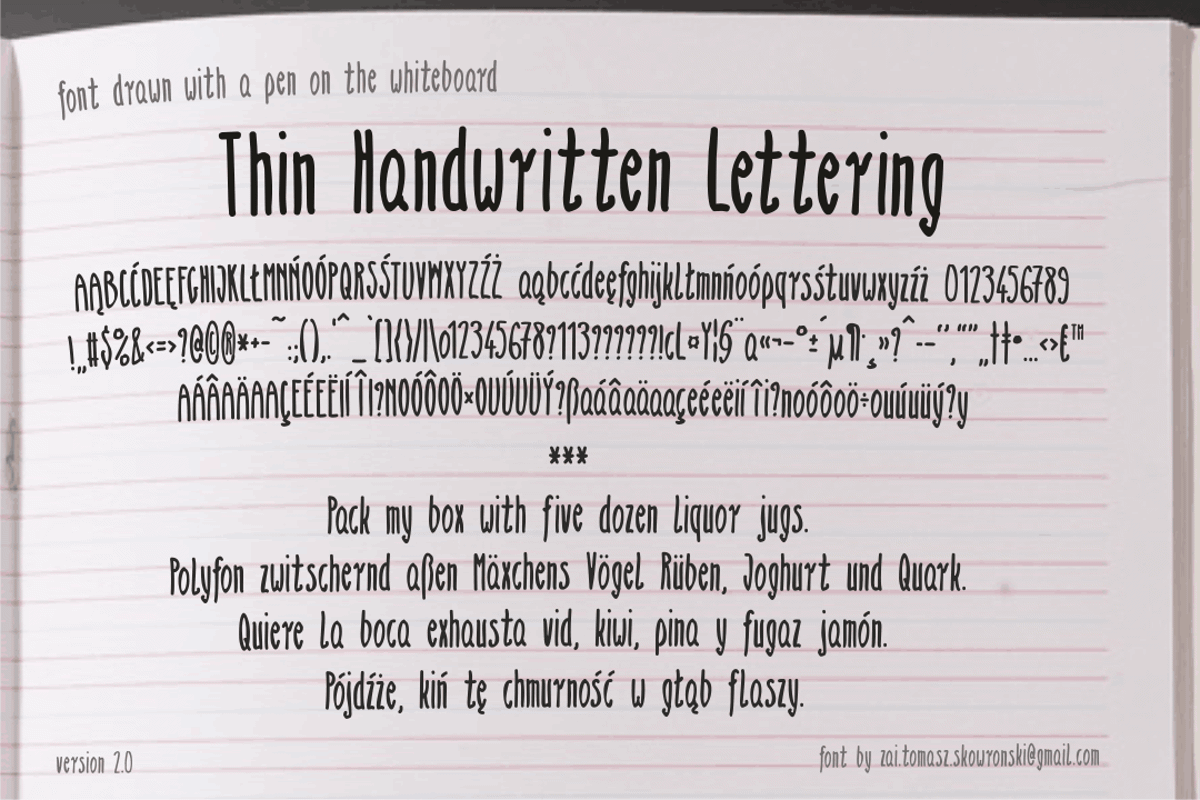 font drawn with a pen on the whiteboard
Thin Handwritten Lettering
AĄBCĆDEĘFGHIJKLŁMNŃOÓPQRSŚTUVWXYZŹŻ aąbcćdeęfghijklłmnńoópqrsśtuvwxyzźż 0123456789
!„#$%&<=>?@©®*+-~:;(),.'^_`[]{}/|\012345678?113??????!cL¤Y¦§¨a«¬–°±´µ¶·¸»?ˆ--‘’‚“”„†‡•…‹›€™
AÁÂAÄAAÇEÉEËIÍÎI?NOÓÔOÖ×OUÚUÜÝ?ßaáâaäaaçeéeëiíîi?noóôoö÷ouúuüý?y
***
Pack my box with five dozen liquor jugs.
Polyfon zwitschernd aßen Mäxchens Vögel Rüben, Joghurt und Quark.
Quiere la boca exhausta vid, kiwi, pina y fugaz jamón.
Pójdźże, kiń tę chmurność w głąb flaszy.
version 2.0
font by zai.tomasz.skowronski@gmail.com